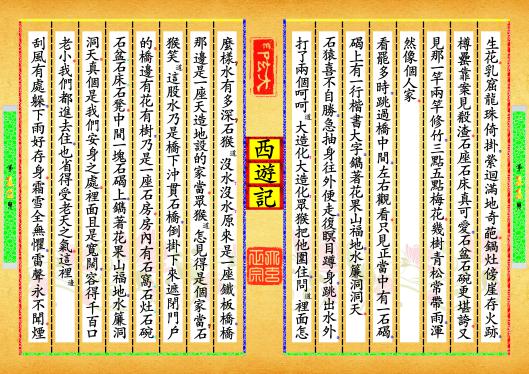 生花乳窟龍珠倚掛縈迴滿地奇葩鍋灶傍崖存火跡
樽罍靠案見殽渣石座石床真可愛石盆石碗更堪誇又
見那一竿兩竿修竹三點五點梅花幾樹青松常帶雨渾
然像個人家
看罷多時跳過橋中間左右觀看只見正當中有一石碣
碣上有一行楷書大字鐫著花果山福地水簾洞洞天
石猿喜不自勝急抽身往外便走復瞑目蹲身跳出水外
打了兩個呵呵道大造化大造化眾猴把他圍住問道裡面怎
西遊記
麼樣水有多深石猴道沒水沒水原來是一座鐵板橋橋
那邊是一座天造地設的家當眾猴道怎見得是個家當石
猴笑道這股水乃是橋下沖貫石橋倒掛下來遮閉門戶
的橋邊有花有樹乃是一座石房房內有石窩石灶石碗
石盆石床石凳中間一塊石碣上鐫著花果山福地水簾
洞天真個是我們安身之處裡面且是寬闊容得千百口
老小我們都進去住也省得受老天之氣這裡邊
刮風有處躲下雨好存身霜雪全無懼雷聲永不聞煙